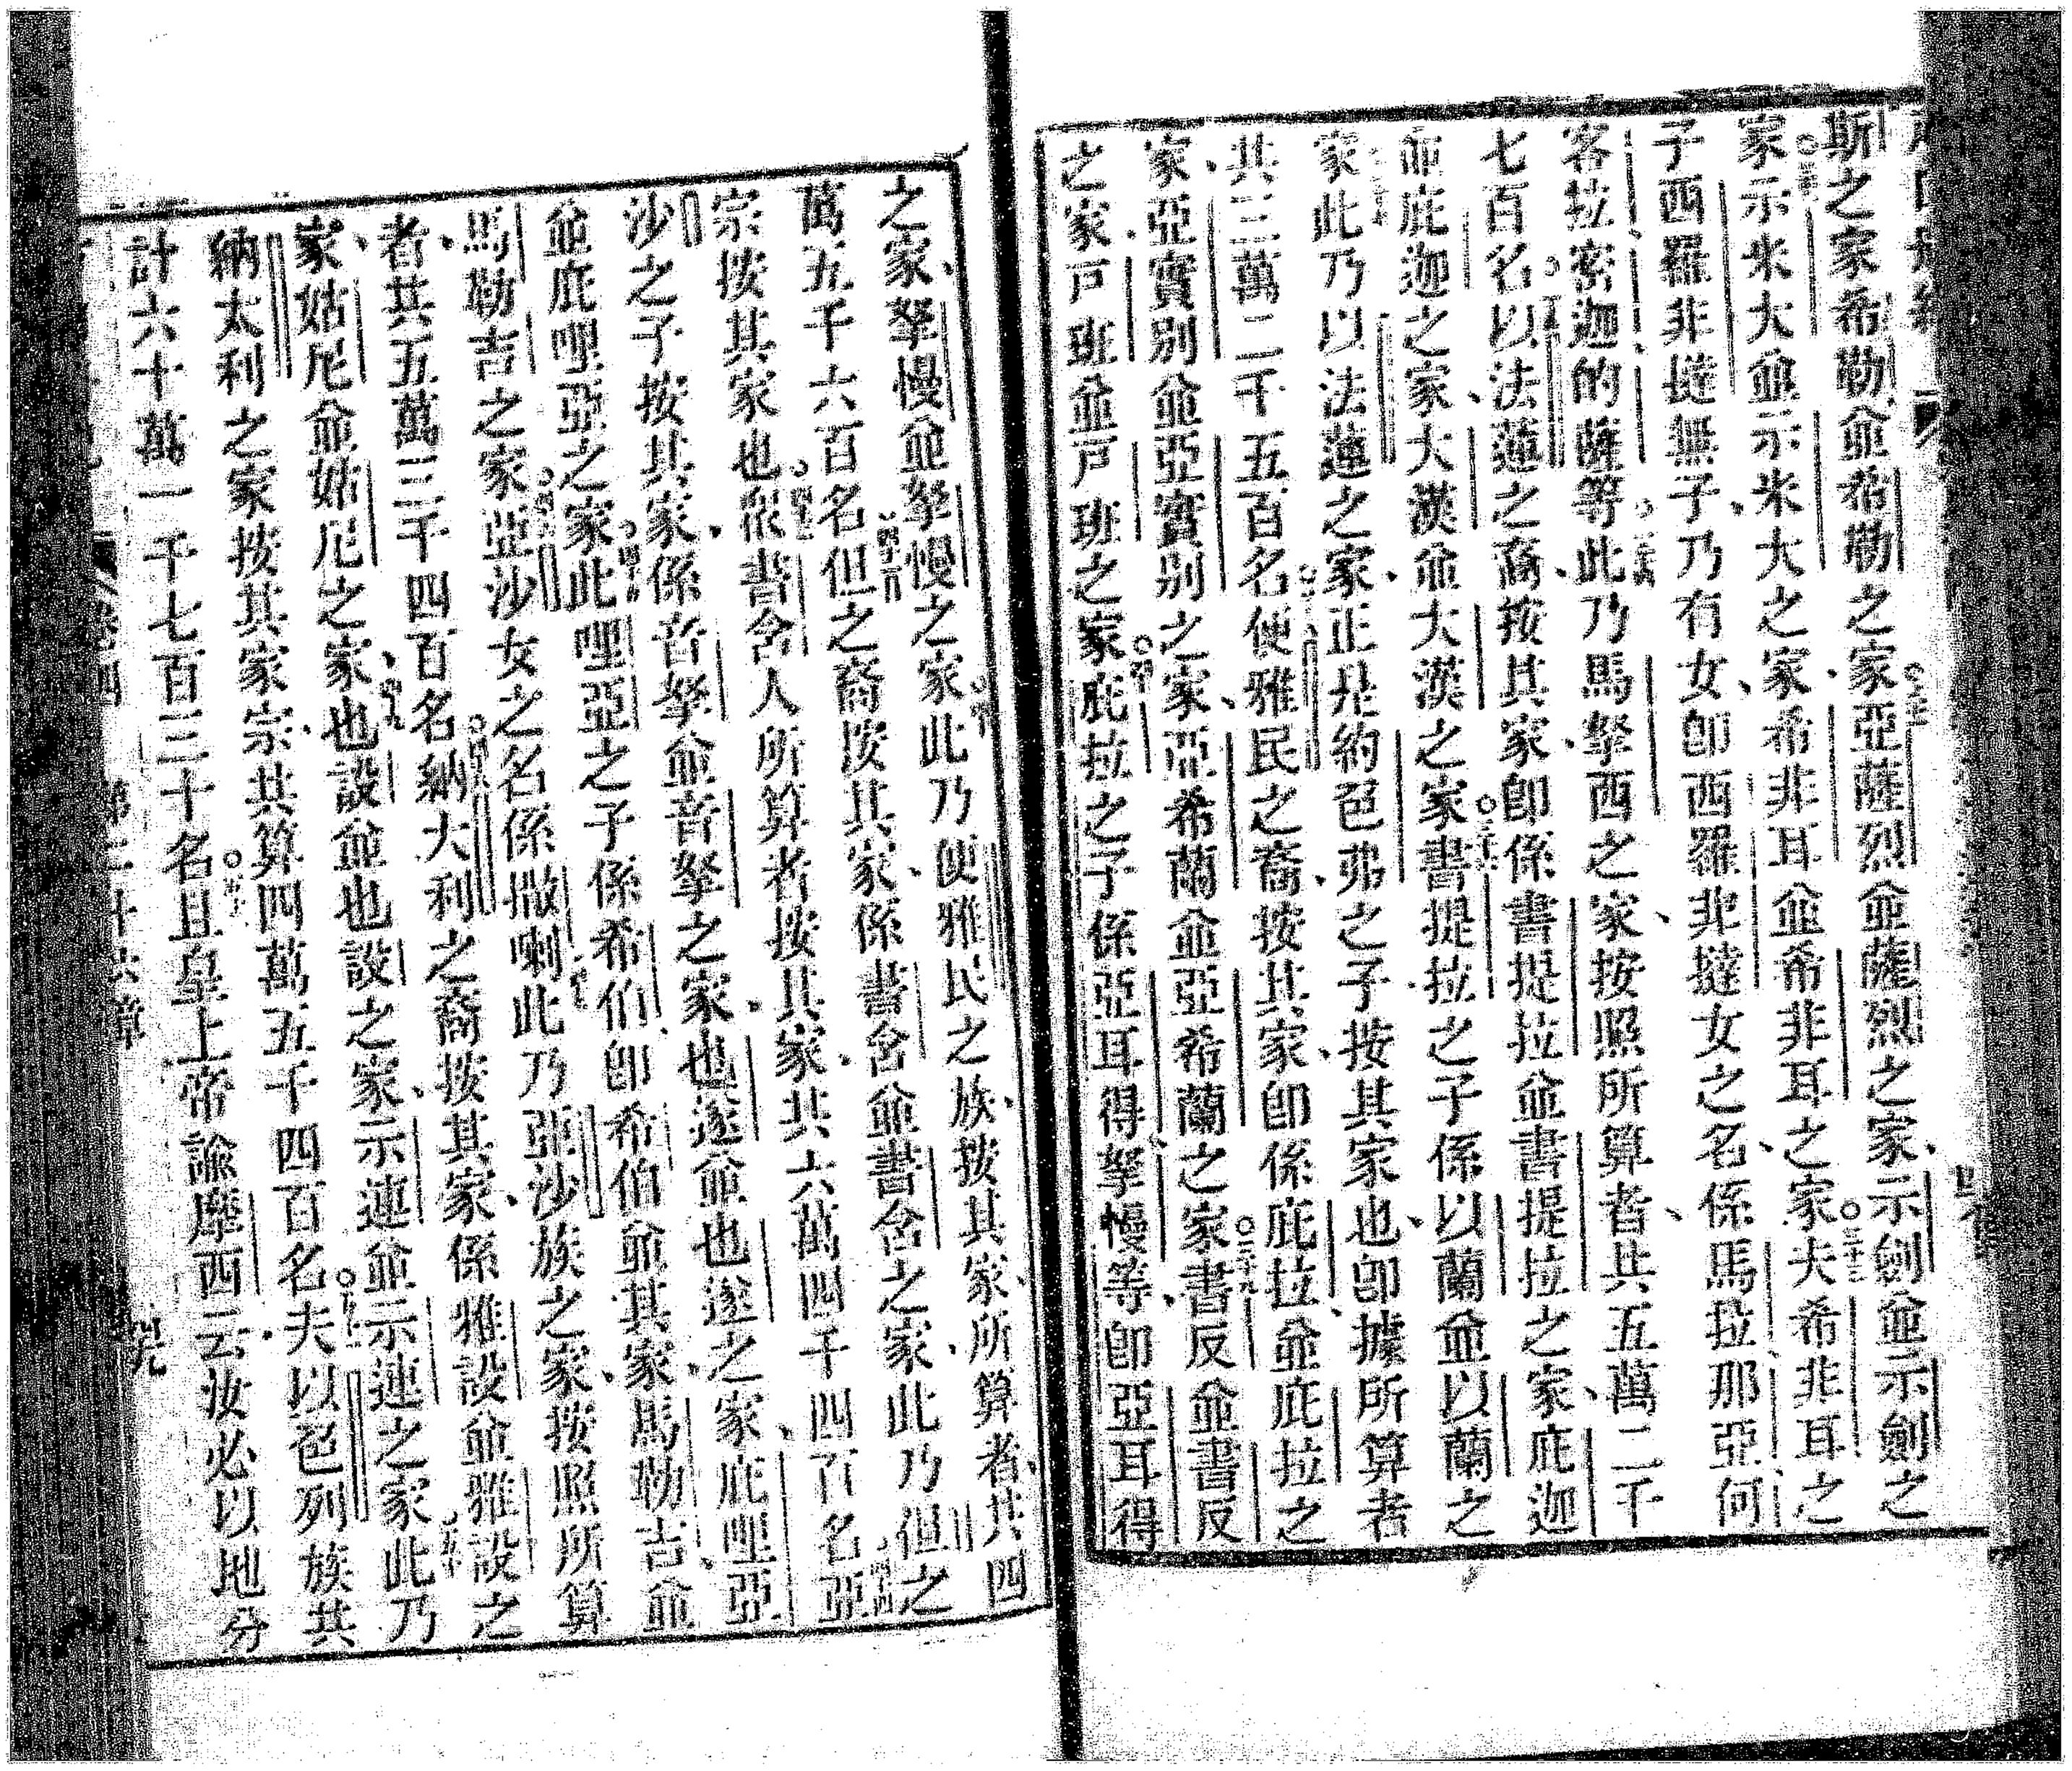 斯之家希勒並希勒之家亞薩烈並薩烈之家示劍並示劍之
家示米大並示米大之家希非耳並希非耳之家夫希非耳之
子西羅非撻無子乃有女卽西羅非撻女之名係馬拉那亞何
客拉密迦的薩等此乃馬拏西之家按照所算者共五萬二千
七百名以法蓮之裔按其家卽係書提拉並書提拉之家庇迦
並庇迦之家大漢並大漢之家書提拉之子係以蘭並以蘭之
家此乃以法蓮之家正是約色弗之子按其家也卽據所算者
共三萬二千五百名便雅民之裔按其家卽係庇拉並庇拉之
家亞實别並亞實别之家亞希蘭並亞希蘭之家書反並書反
之家戸班並戸班之家庇拉之子係亞耳得拏慢等卽亞耳得
之家拏慢並拏慢之家此乃便雅民之族按其家所算者共四
萬五千六百名但之裔按其家係書含並書含之家此乃但之
宗按其家也依書含人所算者按其家共六萬四千四百名亞
沙之子按其家係音拏並音拏之家也遂並也遂之家庇哩亞
並庇哩亞之家此哩亞之子係希伯卽希伯並其家馬勒吉並
馬勒吉之家亞沙女之名係撒喇此乃亞沙族之家按照所算
者共五萬三千四百名納大利之裔按其家係雅設並雅設之
家姑尼並姑尼之家也設並也設之家示連並示連之家此乃
納太利之家按其家宗共算四萬五千四百名夫以色列族共
計六十萬一千七百三十名且皇上帝諭摩西云汝必以地分
第二十六章